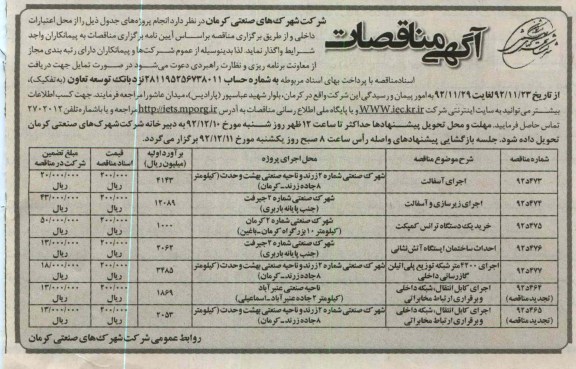 آگهی مناقصات
شرکت شهرک‌های صنعتی کرمان در نظر دارد انجام پروژه‌های جدول ذیل را از محل اعتبارات
داخلی و از طریق برگزاری مناقصه براساس آیین نامه برگزاری مناقصات به پیمانکاران واجد
شرایط واگذار نماید. لذا بدینوسیله از عموم شرکت‌ها و پیمانکاران دارای رتبه بندی مجاز
از معاونت برنامه ریزی و نظارت راهبردی دعوت می‌شود در صورت تمایل جهت دریافت
اسناد مناقصه با پرداخت بهای اسناد مربوطه به شماره حساب ۲۸۱۱۹۵۲۵۶۷۳۸۰۱۱ نزد بانک توسعه تعاون (به تفکیک)،
از تاریخ ۹۲/۱۱/۲۳ لغایت ۹۲/۱۱/۲۹ به امور پیمان و رسیدگی این شرکت واقع در کرمان، بلوار شهید عباسپور (پارادیس)، میدان عاشورا مراجعه فرمایند. جهت کسب اطلاعات
بیشتر می‌توانید به سایت اینترنتی شرکت WWW.iec.kr.ir و یا پایگاه ملی اطلاع رسانی مناقصات به آدرس http://iets.mporg.ir مراجعه و یا با شماره تلفن ۲۷۰۲۰۱۲
تماس حاصل فرمایید. مهلت و محل تحویل پیشنهادها حداکثر تا ساعت ۱۲ ظهر روز شنبه مورخ ۹۲/۱۲/۱۰ به دبیرخانه شرکت شهرک‌های صنعتی کرمان
تحویل داده شود. جلسه بازگشایی پیشنهادهای واصله رأس ساعت ۸ صبح روز یکشنبه مورخ ۹۲/۱۲/۱۱ برگزار می‌گردد.
شماره مناقصه شرح موضوع مناقصه محل اجرای پروژه برآورد اولیه (میلیون ریال) قیمت اسناد مناقصه مبلغ تضمین شرکت در مناقصه
۹۲۵۴۷۳ اجرای آسفالت شهرک صنعتی شماره ۲ زرند و ناحیه صنعتی بهشت وحدت (کیلومتر ۸ جاده زرند ـ کرمان) ۴۱۴۳ ۲۰۰/۰۰۰ ریال ۲۰/۰۰۰/۰۰۰ ریال
۹۲۵۴۷۴ اجرای زیرسازی و آسفالت شهرک صنعتی شماره ۲ جیرفت (جنب پایانه باربری) ۱۲۰۸۹ ۲۰۰/۰۰۰ ریال ۴۳/۰۰۰/۰۰۰ ریال
۹۲۵۴۷۵ خرید یک دستگاه ترانس کمپکت شهرک صنعتی شماره ۲ کرمان (کیلومتر ۱۰ بزرگراه کرمان ـ باغین) ۱۰۰۰ ۲۰۰/۰۰۰ ریال ۵۰/۰۰۰/۰۰۰ ریال
۹۲۵۴۷۶ احداث ساختمان ایستگاه آتش‌نشانی شهرک صنعتی شماره ۲ جیرفت (جنب پایانه باربری) ۲۰۶۲ ۲۰۰/۰۰۰ ریال ۱۳/۰۰۰/۰۰۰ ریال
۹۲۵۴۷۷ اجرای ۴۲۰۰ متر شبکه توزیع پلی اتیلن گازرسانی داخلی شهرک صنعتی شماره ۲ زرند و ناحیه صنعتی بهشت وحدت (کیلومتر ۸ جاده زرند ـ کرمان) ۳۴۸۵ ۲۰۰/۰۰۰ ریال ۱۸/۰۰۰/۰۰۰ ریال
۹۲۵۴۶۴ (تجدید مناقصه) اجرای کابل انتقال، شبکه داخلی و برقراری ارتباط مخابراتی ناحیه صنعتی عنبرآباد (کیلومتر ۲ جاده عنبرآباد ـ اسماعیلی) ۱۸۶۹ ۲۰۰/۰۰۰ ریال ۱۳/۰۰۰/۰۰۰ ریال
۹۲۵۴۶۵ (تجدید مناقصه) اجرای کابل انتقال، شبکه داخلی و برقراری ارتباط مخابراتی شهرک صنعتی شماره ۲ زرند و ناحیه صنعتی بهشت وحدت (کیلومتر ۸ جاده زرند ـ کرمان) ۲۰۵۳ ۲۰۰/۰۰۰ ریال ۱۳/۰۰۰/۰۰۰ ریال
روابط عمومی شرکت شهرک‌های صنعتی کرمان